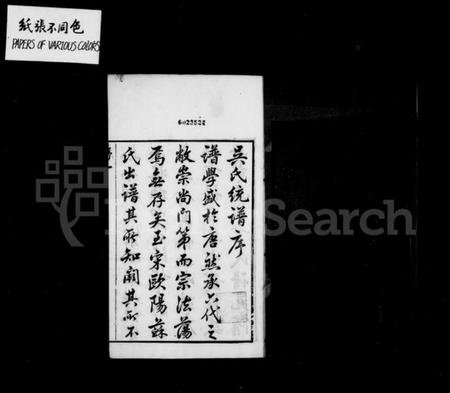 紙張不同色
PAPERS OF VARIOUS COLORS
6023524
吳氏統譜序
譜學盛於唐然承六代之
敝崇尚門第而宗法蕩
焉無存矣至宋歐陽蘇
氏出譜其所知闕其所不
FamilySearch